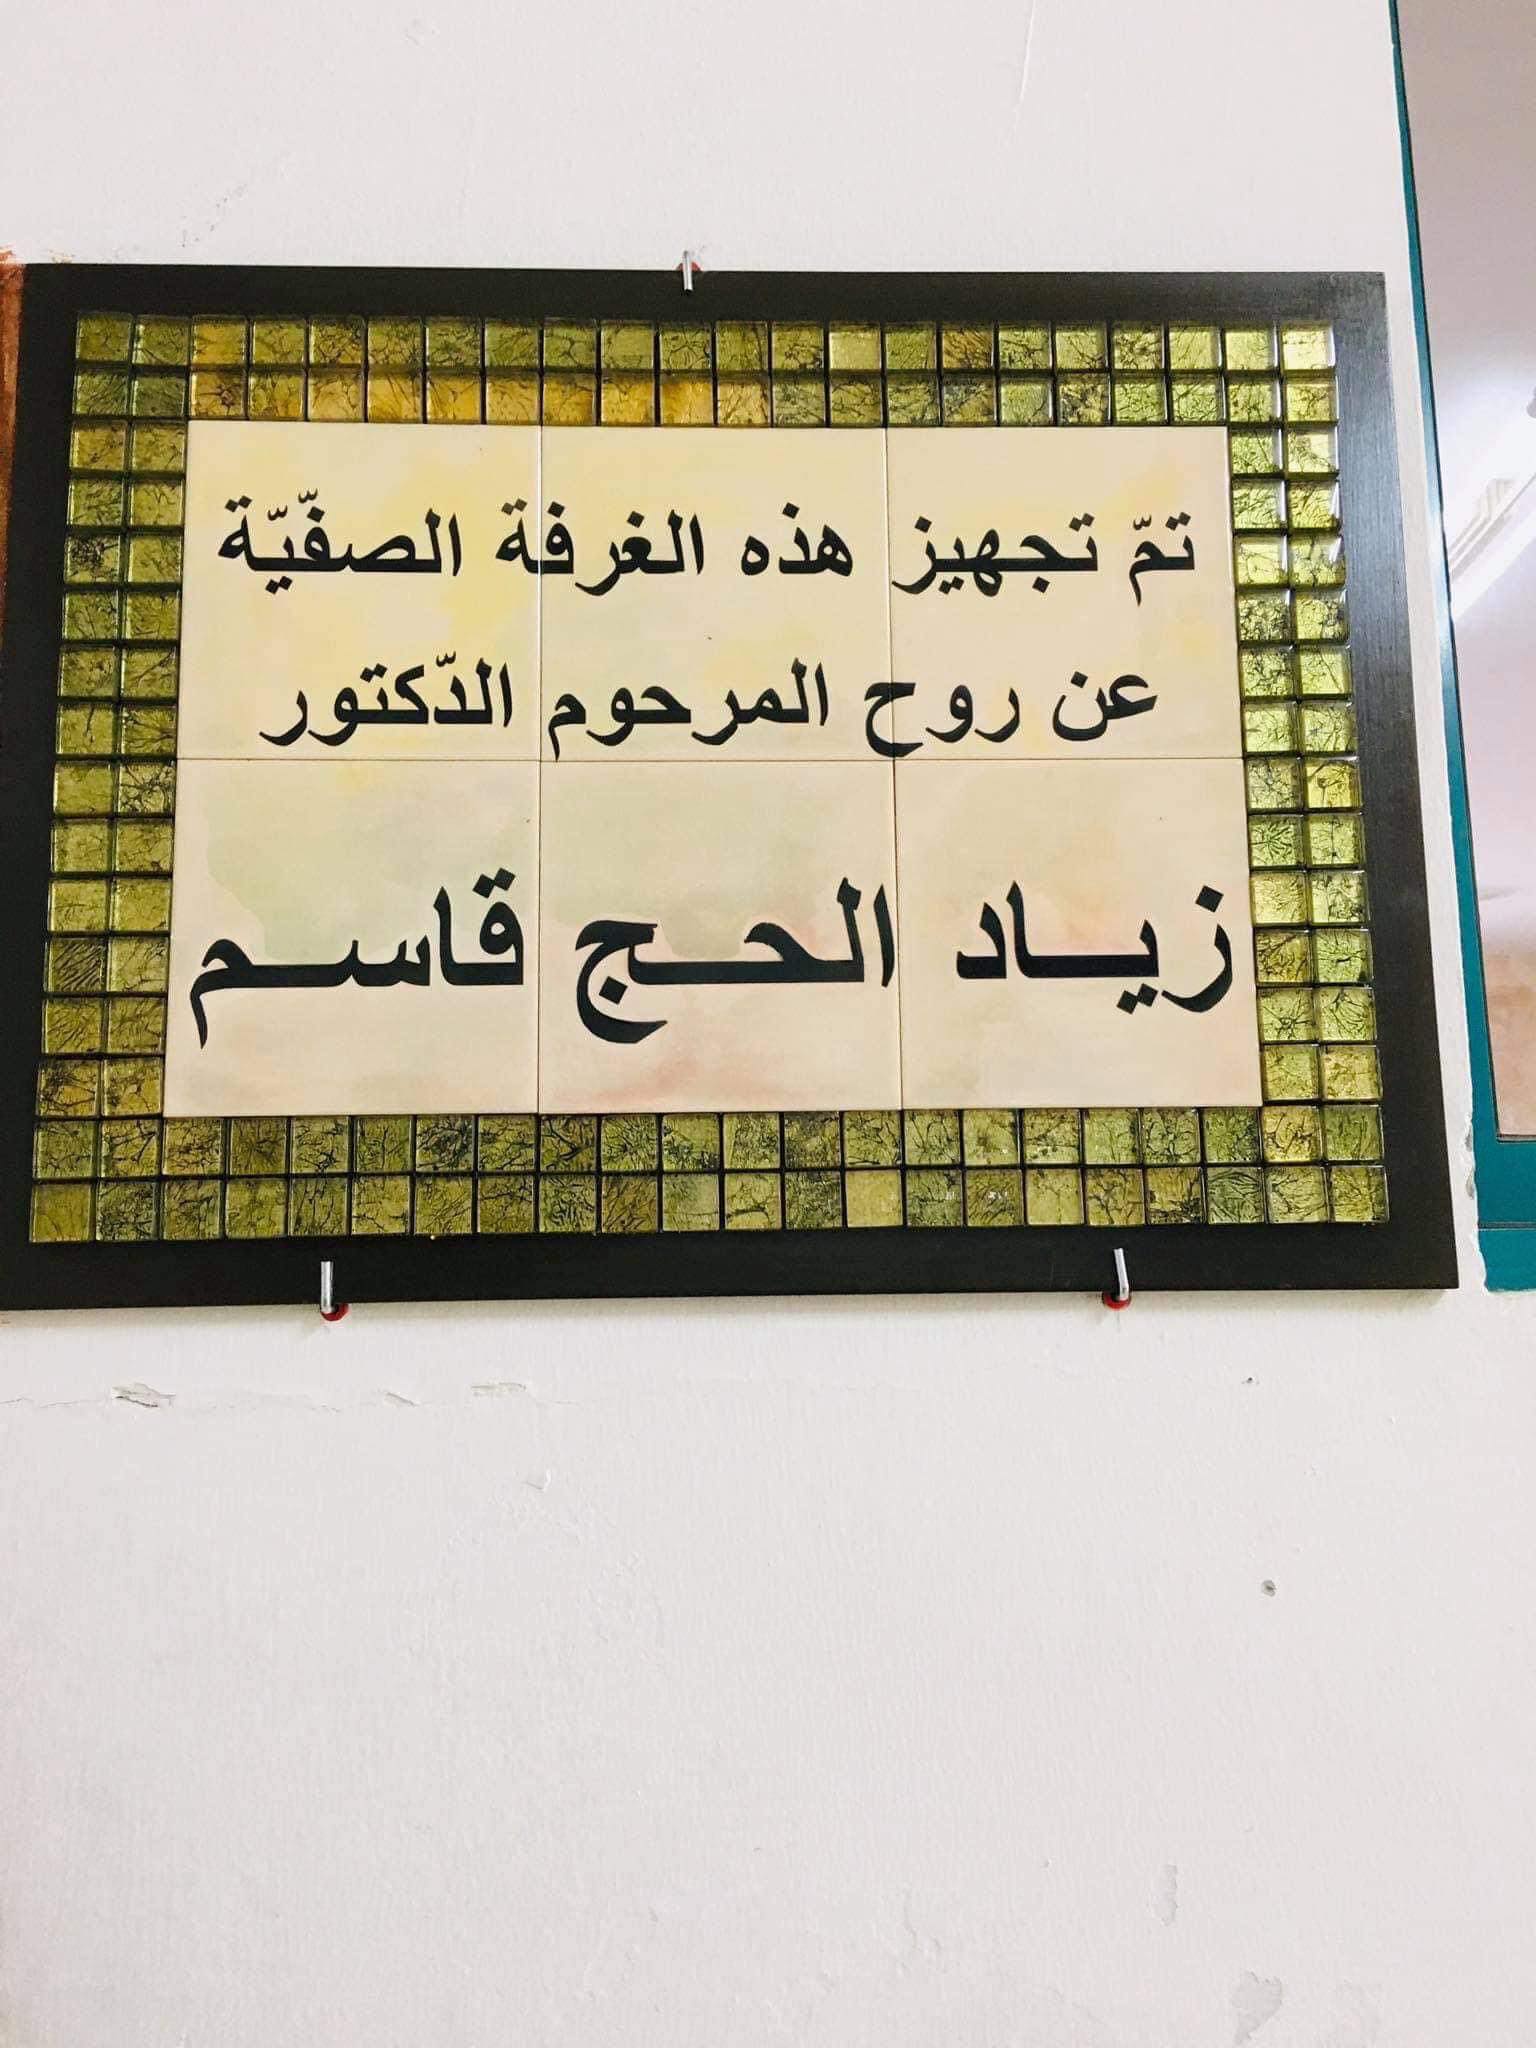 تمّ تجهيز هذه الغرفة الصفّيّة
عن روح المرحوم الدّكتور
زيـاد الحـج قاسـم